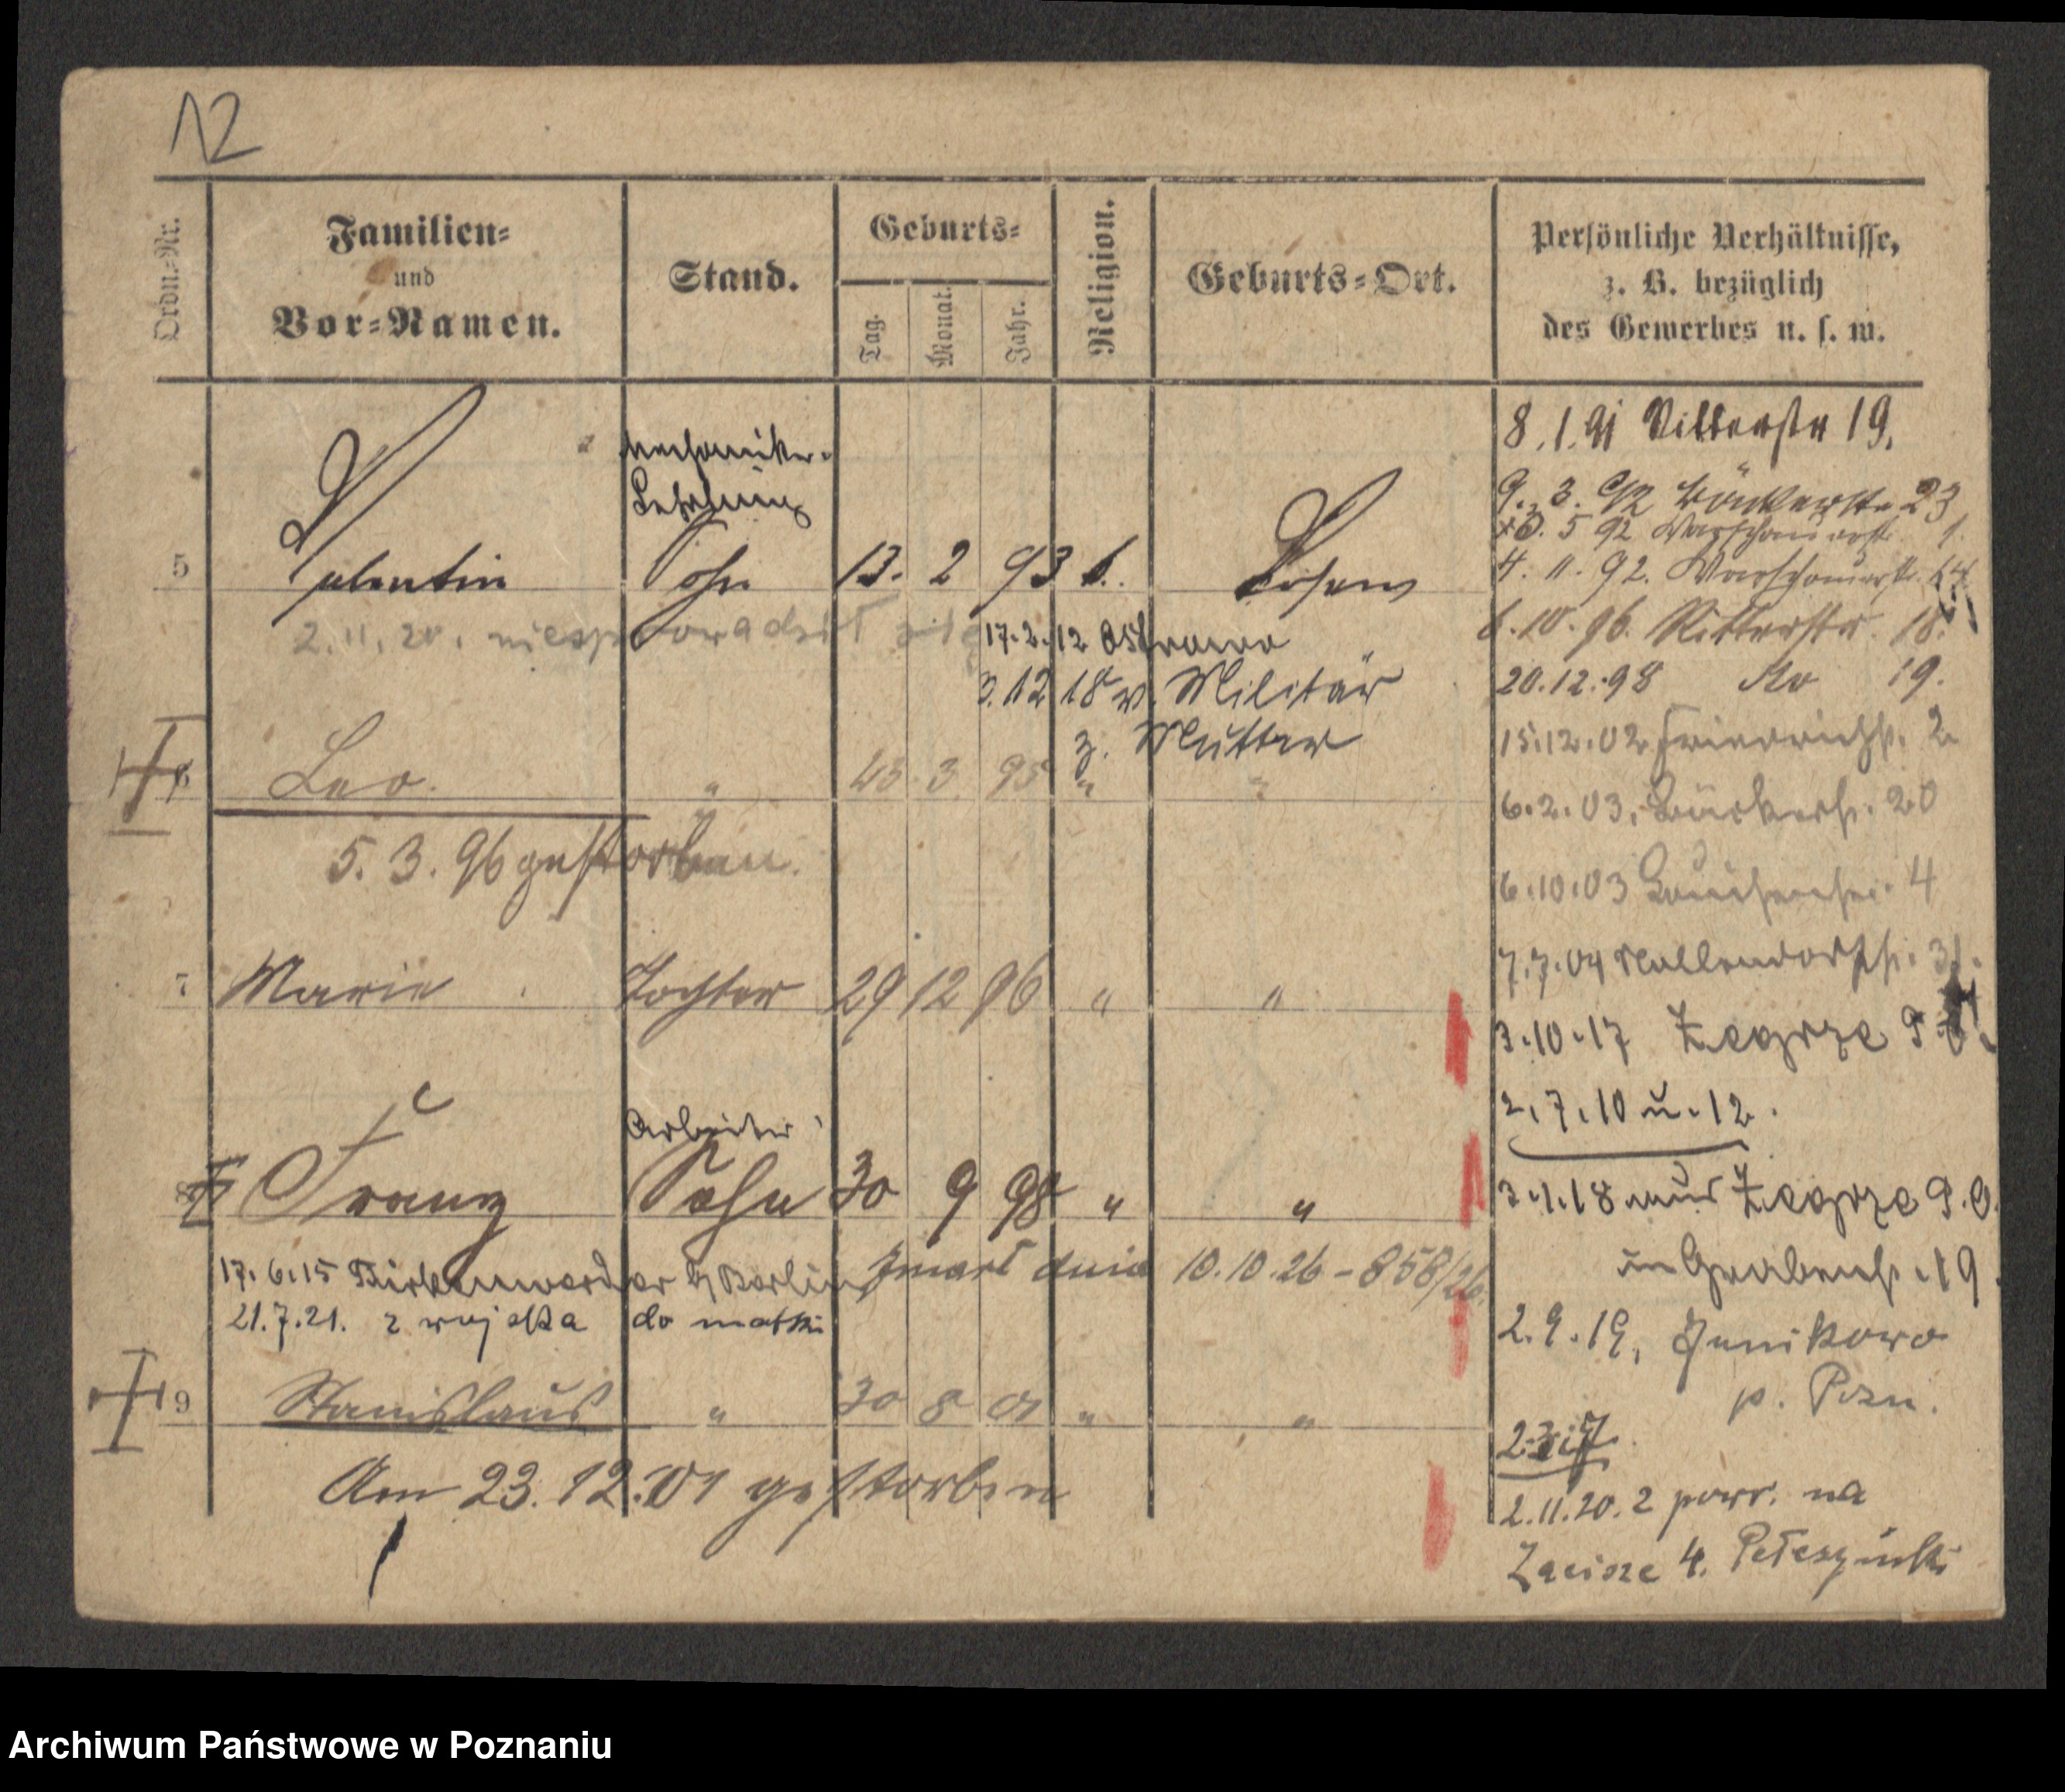 12
Ordn.-Nr.
Familien-
und
Vor-Namen.
Stand.
Geburts-
Tag.
Monat.
Jahr.
Religion.
Geburts-Ort.
Persönliche Verhältnisse,
z. B. bezüglich
des Gewerbes u. s. w.
Mechaniker-
Lehrling
5 Valentin Sohn 13. 2 93 k. Posen
2.11.20. niesprowadził się
17.2.12 Ostrowo
3.12 18 v. Militär
z. Mutter
6 Leo. " 3 95 " "
5. 3. 96 gestorben.
7 Marie Tochter 29 12 96 " "
Arbeiter
8 Franz Sohn 30 9 98 " "
17.6.15 Birkenwerder b/Berlin
zmarł dnia 10.10.26 - 858/26.
21.7.21. z wojska do matki
9 Stanislaus " 30 8 01 " "
Am 23.12.01 gestorben
8.1.91 Ritterstr 19.
9. 3. 92 Bäckerstr 23
5 92 Warschauerstr. 1.
4. 11. 92. Warschauerstr.
10.96. Ritterstr. 18.
20.12.98 do 19.
15.12.02 Friedrichstr. 2
6.2.03. Bäckerstr. 20
6.10.03 4
7.7.04 Nollendorfstr.
3.10.17 Zegrze
2, 7, 10 u. 12.
3.1.18 nur Zegrze P.O.
in Grabenstr. 19.
2.9.19, Junikowo
p. Pozn.
2.11.20. z powr. na
Zacisze 4.
Archiwum Państwowe w Poznaniu